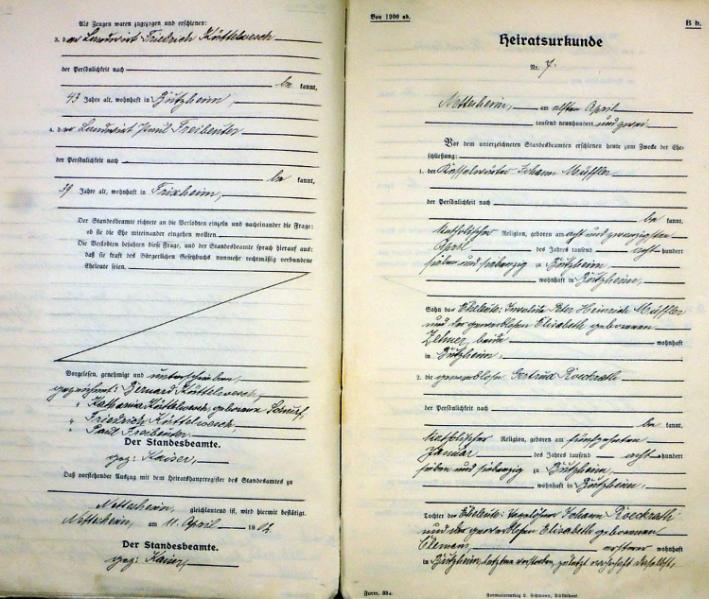 Als Zeugen waren zugezogen und erschienen:
3. der Landwirt Friedrich Küttelwesch
der Persönlichkeit nach
be kannt,
43 Jahre alt, wohnhaft in Zützheim,
4. der Landwirt Paul Freibenter
der Persönlichkeit nach
be kannt,
39 Jahre alt, wohnhaft in Frixheim,
Der Standesbeamte richtete an die Verlobten einzeln und nacheinander die Frage:
ob sie die Ehe miteinander eingehen wollten.
Die Verlobten bejahten diese Frage, und der Standesbeamte sprach hierauf aus:
daß sie kraft des Bürgerlichen Gesetzbuchs nunmehr rechtmäßig verbundene
Eheleute seien.
Vorgelesen, genehmigt und unterschrieben,
gezeichnet: Bernard Küttelwesch,
" Katharina Küttelwesch geborene
" Friedrich Küttelwesch,
" Paul Freibenter
Der Standesbeamte.
gez: Kaiser,
Daß vorstehender Auszug mit dem Heiratshauptregister des Standesamtes zu
Nettesheim, gleichlautend ist, wird hiermit bestätigt.
Nettesheim, am 11. April 1902
Der Standesbeamte.
gez: Kaiser,
Von 1900 ab.
B b.
Heiratsurkunde
Nr. 7.
Nettesheim, am elften April
tausend neunhundert und zwei
Vor dem unterzeichneten Standesbeamten erschienen heute zum Zwecke der Ehe-
schließung:
1. der Johann Muffler
der Persönlichkeit nach
be kannt,
katholischer Religion, geboren am acht und zwanzigsten
April des Jahres tausend acht hundert
sieben und siebenzig zu Bützheim,
wohnhaft in Bützheim,
Sohn des Eheleute: Invalide Peter Heinrich Muffler
und der gewerblosen Elisabeth geborenen
Zelmer, beide wohnhaft
in Bützheim,
2. die gewerblose Gertrud Roeckrath
der Persönlichkeit nach
be kannt,
katholischer Religion, geboren am fünfzehnten
Januar des Jahres tausend acht hundert
sieben und siebenzig zu Bützheim,
wohnhaft in Bützheim,
Tochter des Eheleute: Tagelöhner Johann Roeckrath
und der gewerblosen Elisabeth geborenen
Clemens, ersterer wohnhaft
in Bützheim, letztere verstorben zuletzt wohnhaft daselbst,